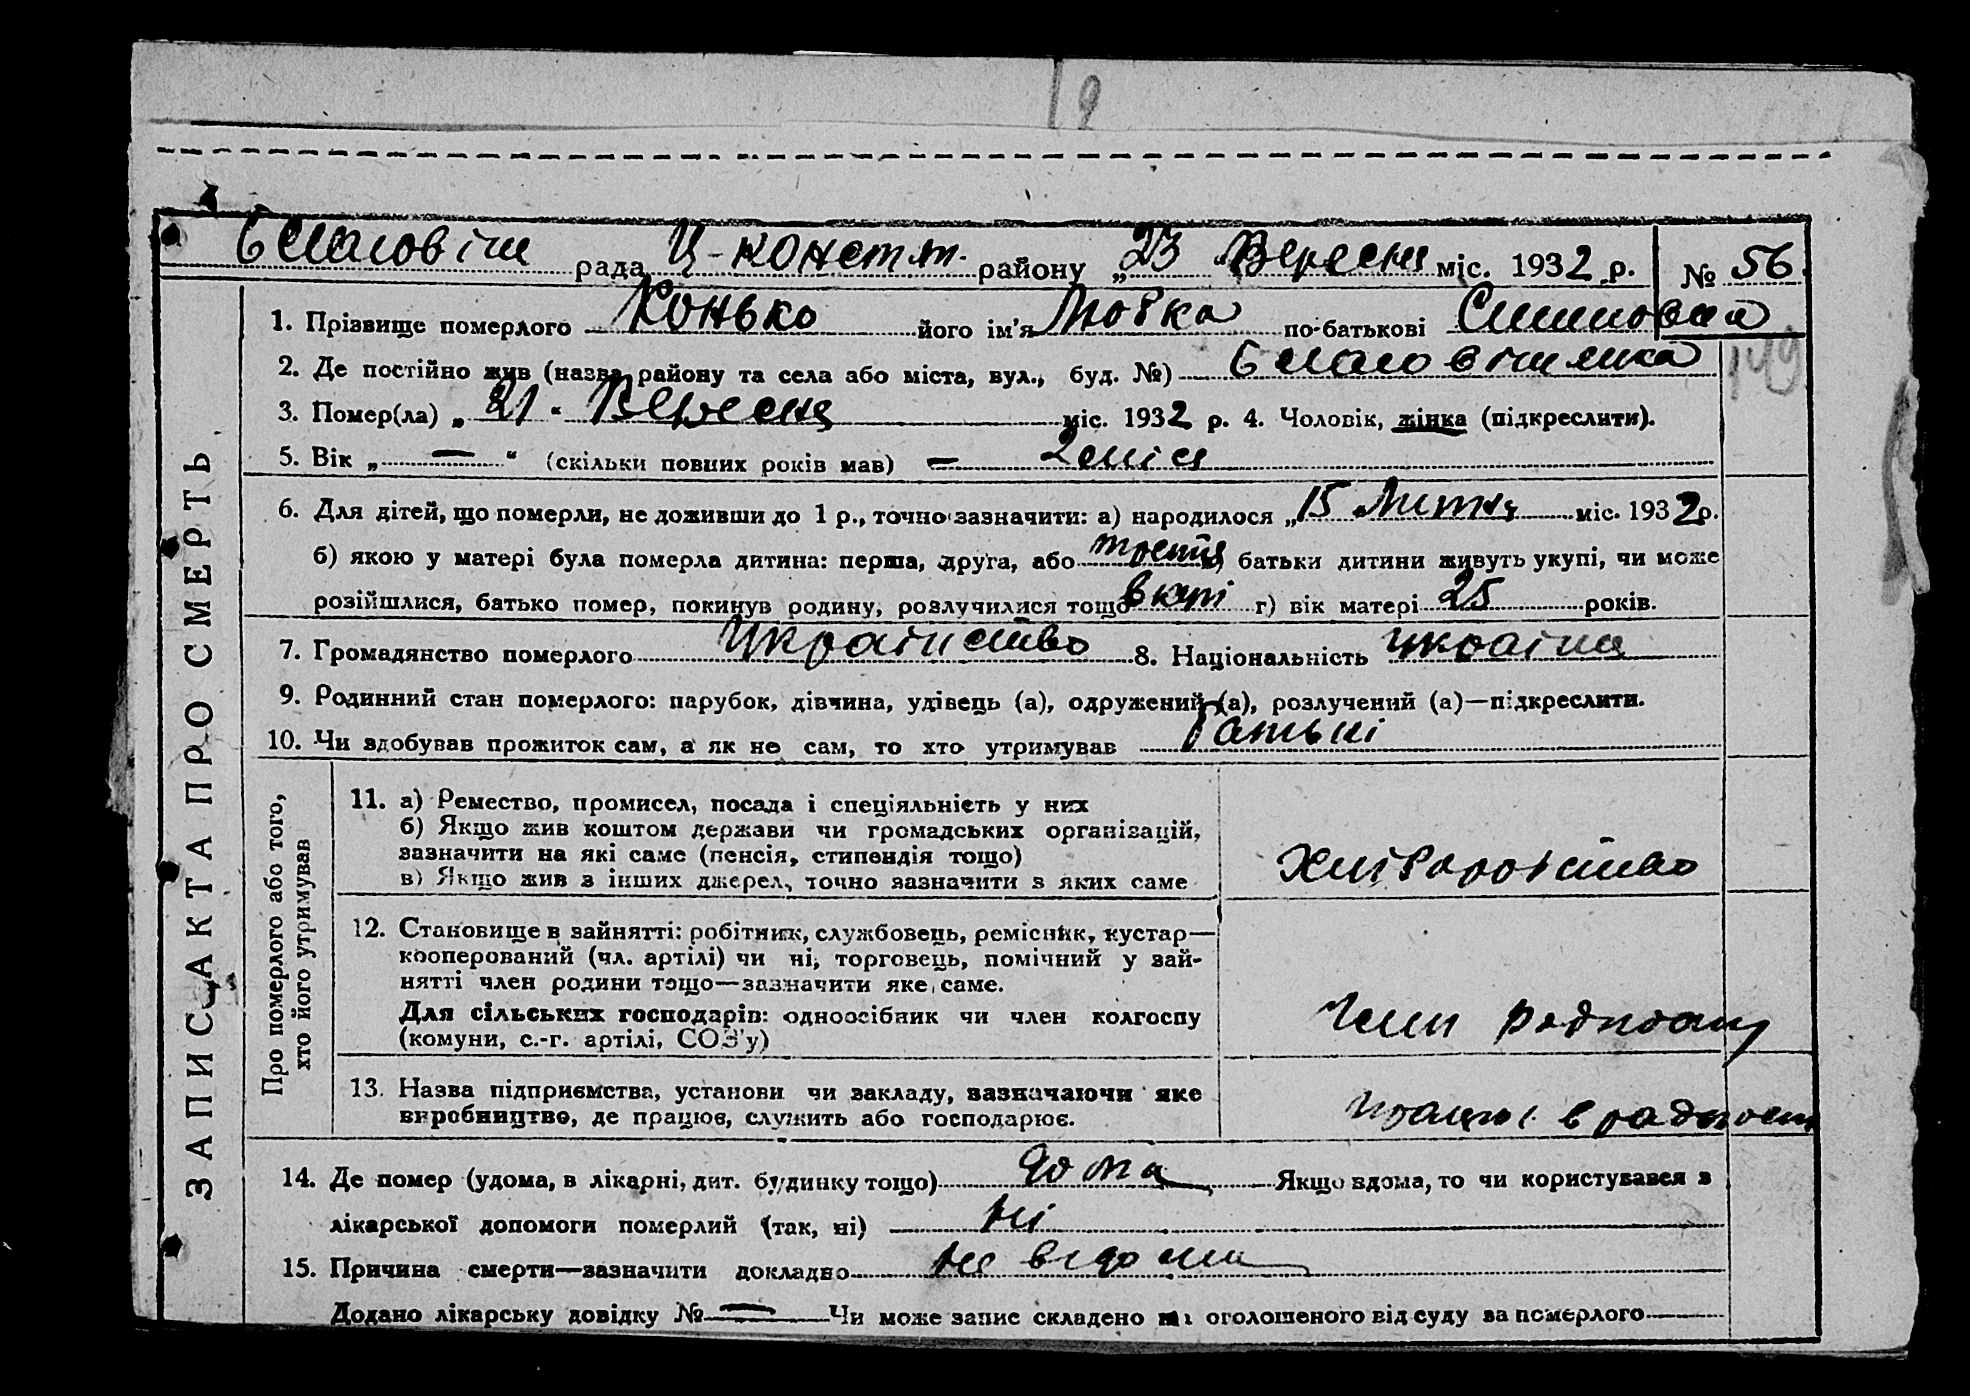 рада Ц-конст. району „23 Вересня міс. 1932 р. № 56.
1. Прізвище померлого Конько його ім'я по-батькові
149
2. Де постійно жив (назва району та села або міста, вул., буд. №)
3. Помер(ла) „21" Вересня міс. 1932 р. 4. Чоловік, жінка (підкреслити).
5. Вік „ — " (скільки повних років мав) —
6. Для дітей, що померли, не доживши до 1 р., точно зазначити: а) народилося „15 міс. 1932 р.
б) якою у матері була померла дитина: перша, друга, або третя батьки дитини живуть укупі, чи може
розійшлися, батько помер, покинув родину, розлучилися тощо вкупі г) вік матері 25 років.
7. Громадянство померлого 8. Національність
9. Родинний стан померлого: парубок, дівчина, удівець (а), одружений (а), розлучений (а)—підкреслити.
10. Чи здобував прожиток сам, а як не сам, то хто утримував
ЗАПИС АКТА ПРО СМЕРТЬ
Про померлого або того, хто його утримував
11. а) Ремество, промисел, посада і спеціяльність у них
б) Якщо жив коштом держави чи громадських організацій,
зазначити на які саме (пенсія, стипендія тощо)
в) Якщо жив з інших джерел, точно зазначити з яких саме
12. Становище в зайнятті: робітник, службовець, ремісник, кустар—
кооперований (чл. артілі) чи ні, торговець, помічний у зай-
нятті член родини тощо—зазначити яке саме.
Для сільських господарів: одноосібник чи член колгоспу
(комуни, с.-г. артілі, СОЗ'у)
13. Назва підприємства, установи чи закладу, зазначаючи яке
виробництво, де працює, служить або господарює.
14. Де помер (удома, в лікарні, дит. будинку тощо) дома Якщо вдома, то чи користувався з
лікарської допомоги померлий (так, ні) ні
15. Причина смерти—зазначити докладно не відома
Додано лікарську довідку № — Чи може запис складено на оголошеного від суду за померлого